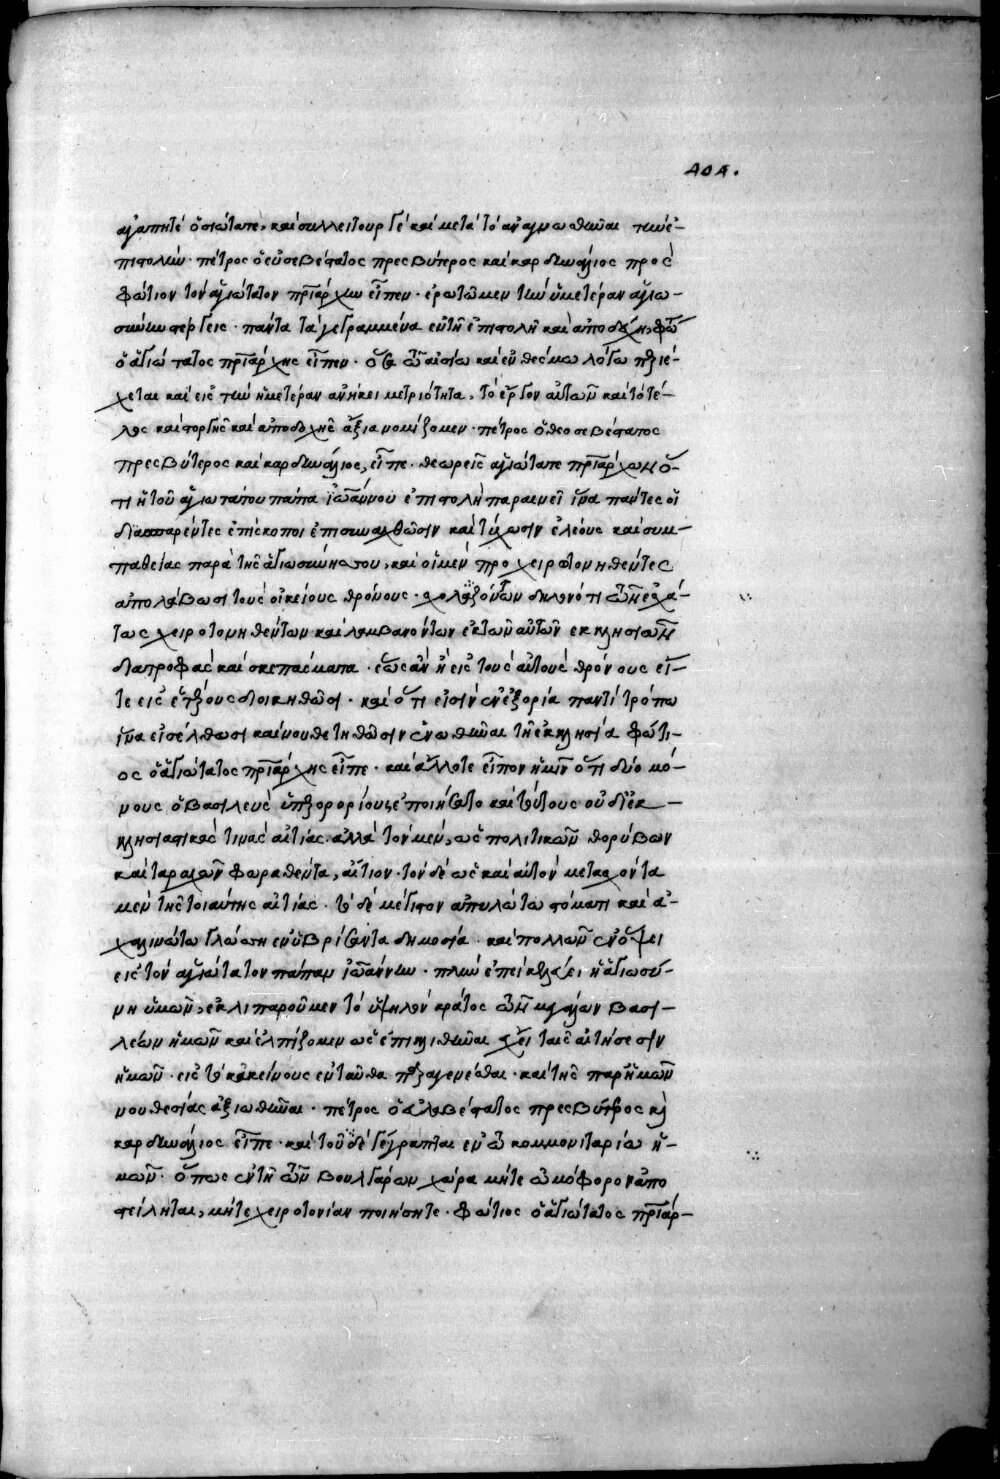 404.
ἀγαπητὲ ὁσιώτατε, καὶ συλλειτουργέ· καὶ μετὰ τὸ ἀναγνωσθῆναι τὴν ἐ-
πιστολὴν· πέτρος ὁ εὐσεβέστατος πρεσβύτερος καὶ καρδινάλιος πρὸς
φώτιον τὸν ἁγιώτατον πριάρχην εἶπεν· ἐρωτῶμεν τὴν ὑμετέραν ἁγιω-
σύνην στέργεις· πάντα τὰ γεγραμμένα ἐν τῇ ἐπιστολῇ καὶ ἀποδέχῃ, φώ
ὁ ἁγιώτατος πριάρχης εἶπεν· ὅσα ἐν αἰσίω καὶ ἐνθέσμω λόγω περιέ-
χεται καὶ εἰς τὴν ἡμετέραν ἀνήκει μετριότητα, τὸ ἔργον αὐτῶν καὶ τὸ τέ-
λος καὶ στοργῆς καὶ ἀποδοχῆς ἄξια νομίζομεν· πέτρος ὁ θεοσεβέστατος
πρεσβύτερος καὶ καρδινάλιος, εἶπε· θεωρεῖς ἁγιώτατε πριάρχα ὅ-
τι ἡ τοῦ ἁγιωτάτου πάπα ἰωάννου ἐπιστολὴ παραινεῖ ἵνα πάντες οἱ
διασπαρέντες ἐπίσκοποι ἐπισυναχθῶσιν καὶ τύχωσιν ἐλέους καὶ συμ-
παθείας παρὰ τῆς ἁγιωσύνης σου, καὶ οἱ μὲν προχειροτονηθέντες
ἀπολάβωσι τοὺς οἰκείους θρόνους· σχολαζόντων δηλονότι τῶν ἐσχά-
τως χειροτονηθέντων καὶ λαμβανόντων ἐκ τῶν αὐτῶν ἐκκλησιῶν
διατροφὰς καὶ σκεπάσματα· ἕως ἂν ἢ εἰς τοὺς αὐτοὺς θρόνους εἴ-
τε εἰς ἑτέρους διοικηθῶσι· καὶ ὅτι εἰσίν ἐν ἐξορία παντὶ τρόπω
ἵνα εἰσέλθωσι καὶ νουθετηθῶσιν ἑνωθῆναι τῇ ἐκκλησία φώτι-
ος ὁ ἁγιώτατος πριάρχης εἶπε· καὶ ἄλλοτε εἶπον ὑμῖν ὅτι δύο μό-
νους ὁ βασιλεὺς ὑπερορίους ἐποιήσατο καὶ τούτους οὐ δι' ἐκ-
κλησιαστικάς τινας αἰτίας ἀλλὰ τὸν μὲν, ὡς πολιτικῶν θορύβων
καὶ ταραχῶν φωραθέντα, αἴτιον· τὸν δὲ ὡς καὶ αὐτὸν μετασχόντα
μὲν τῆς τοιαύτης αἰτίας· τὸ δὲ μέγιστον ἀπυλώτω στόματι καὶ ἀ-
χαλινώτω γλώσση ἐνυβρίσαντα δημοσία καὶ πολλῶν ἐν ὄψει
εἰς τὸν ἁγιώτατον πάπαν ἰωάννην· πλὴν ἐπεὶ κελεύει ἡ ἁγιωσύ-
νη ὑμῶν, ἐκλιπαροῦμεν τὸ ὑψηλὸν κράτος τῶν μεγάλων βασι-
λέων ἡμῶν καὶ ἐλπίζομεν ὡς ἐπικλιθῆναι ἔχει ταῖς αἰτήσεσιν
ἡμῶν· εἰς τὸ κἀκείνους ἐνταῦθα παραγενέσθαι· καὶ τῆς παρ' ἡμῶν
νουθεσίας ἀξιωθῆναι· πέτρος ὁ εὐλαβέστατος πρεσβύτερος καὶ
καρδινάλιος εἶπε· καὶ τοῦ δὲ γέγραπται ἐν τῶ κομμονιταρίω ἡ-
μῶν· ὅπως ἐν τῇ τῶν βουλγάρων χώρα μήτε ὠμόφορον ἀπο
στείλητε, μήτε χειροτονίαν ποιήσητε· φώτιος ὁ ἁγιώτατος πριάρ-